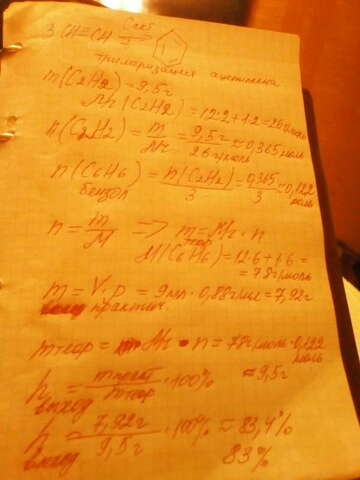 3 CH≡CH Cакт
тримеризация ацетилена
m(C2H2) = 9,5г
Mr(C2H2) = 12·2+1·2=26г/моль
n(C2H2) = m/Mr = 9,5г/26г/моль ≈ 0,365 моль
n(C6H6) = n(C2H2)/3 = 0,365/3 ≈ 0,122 моль
бензол
n = m/M → m = Mr · n
теор
M(C6H6) = 12·6+1·6 =
= 78г/моль
m = V·ρ = 9мл · 0,88г/мл = 7,92г
практич.
mтеор = Mr · n = 78г/моль · 0,122 моль
≈ 9,5г
h = mпракт/mтеор · 100%
выход
h = 7,92г/9,5г · 100% ≈ 83,4%
выход
83%